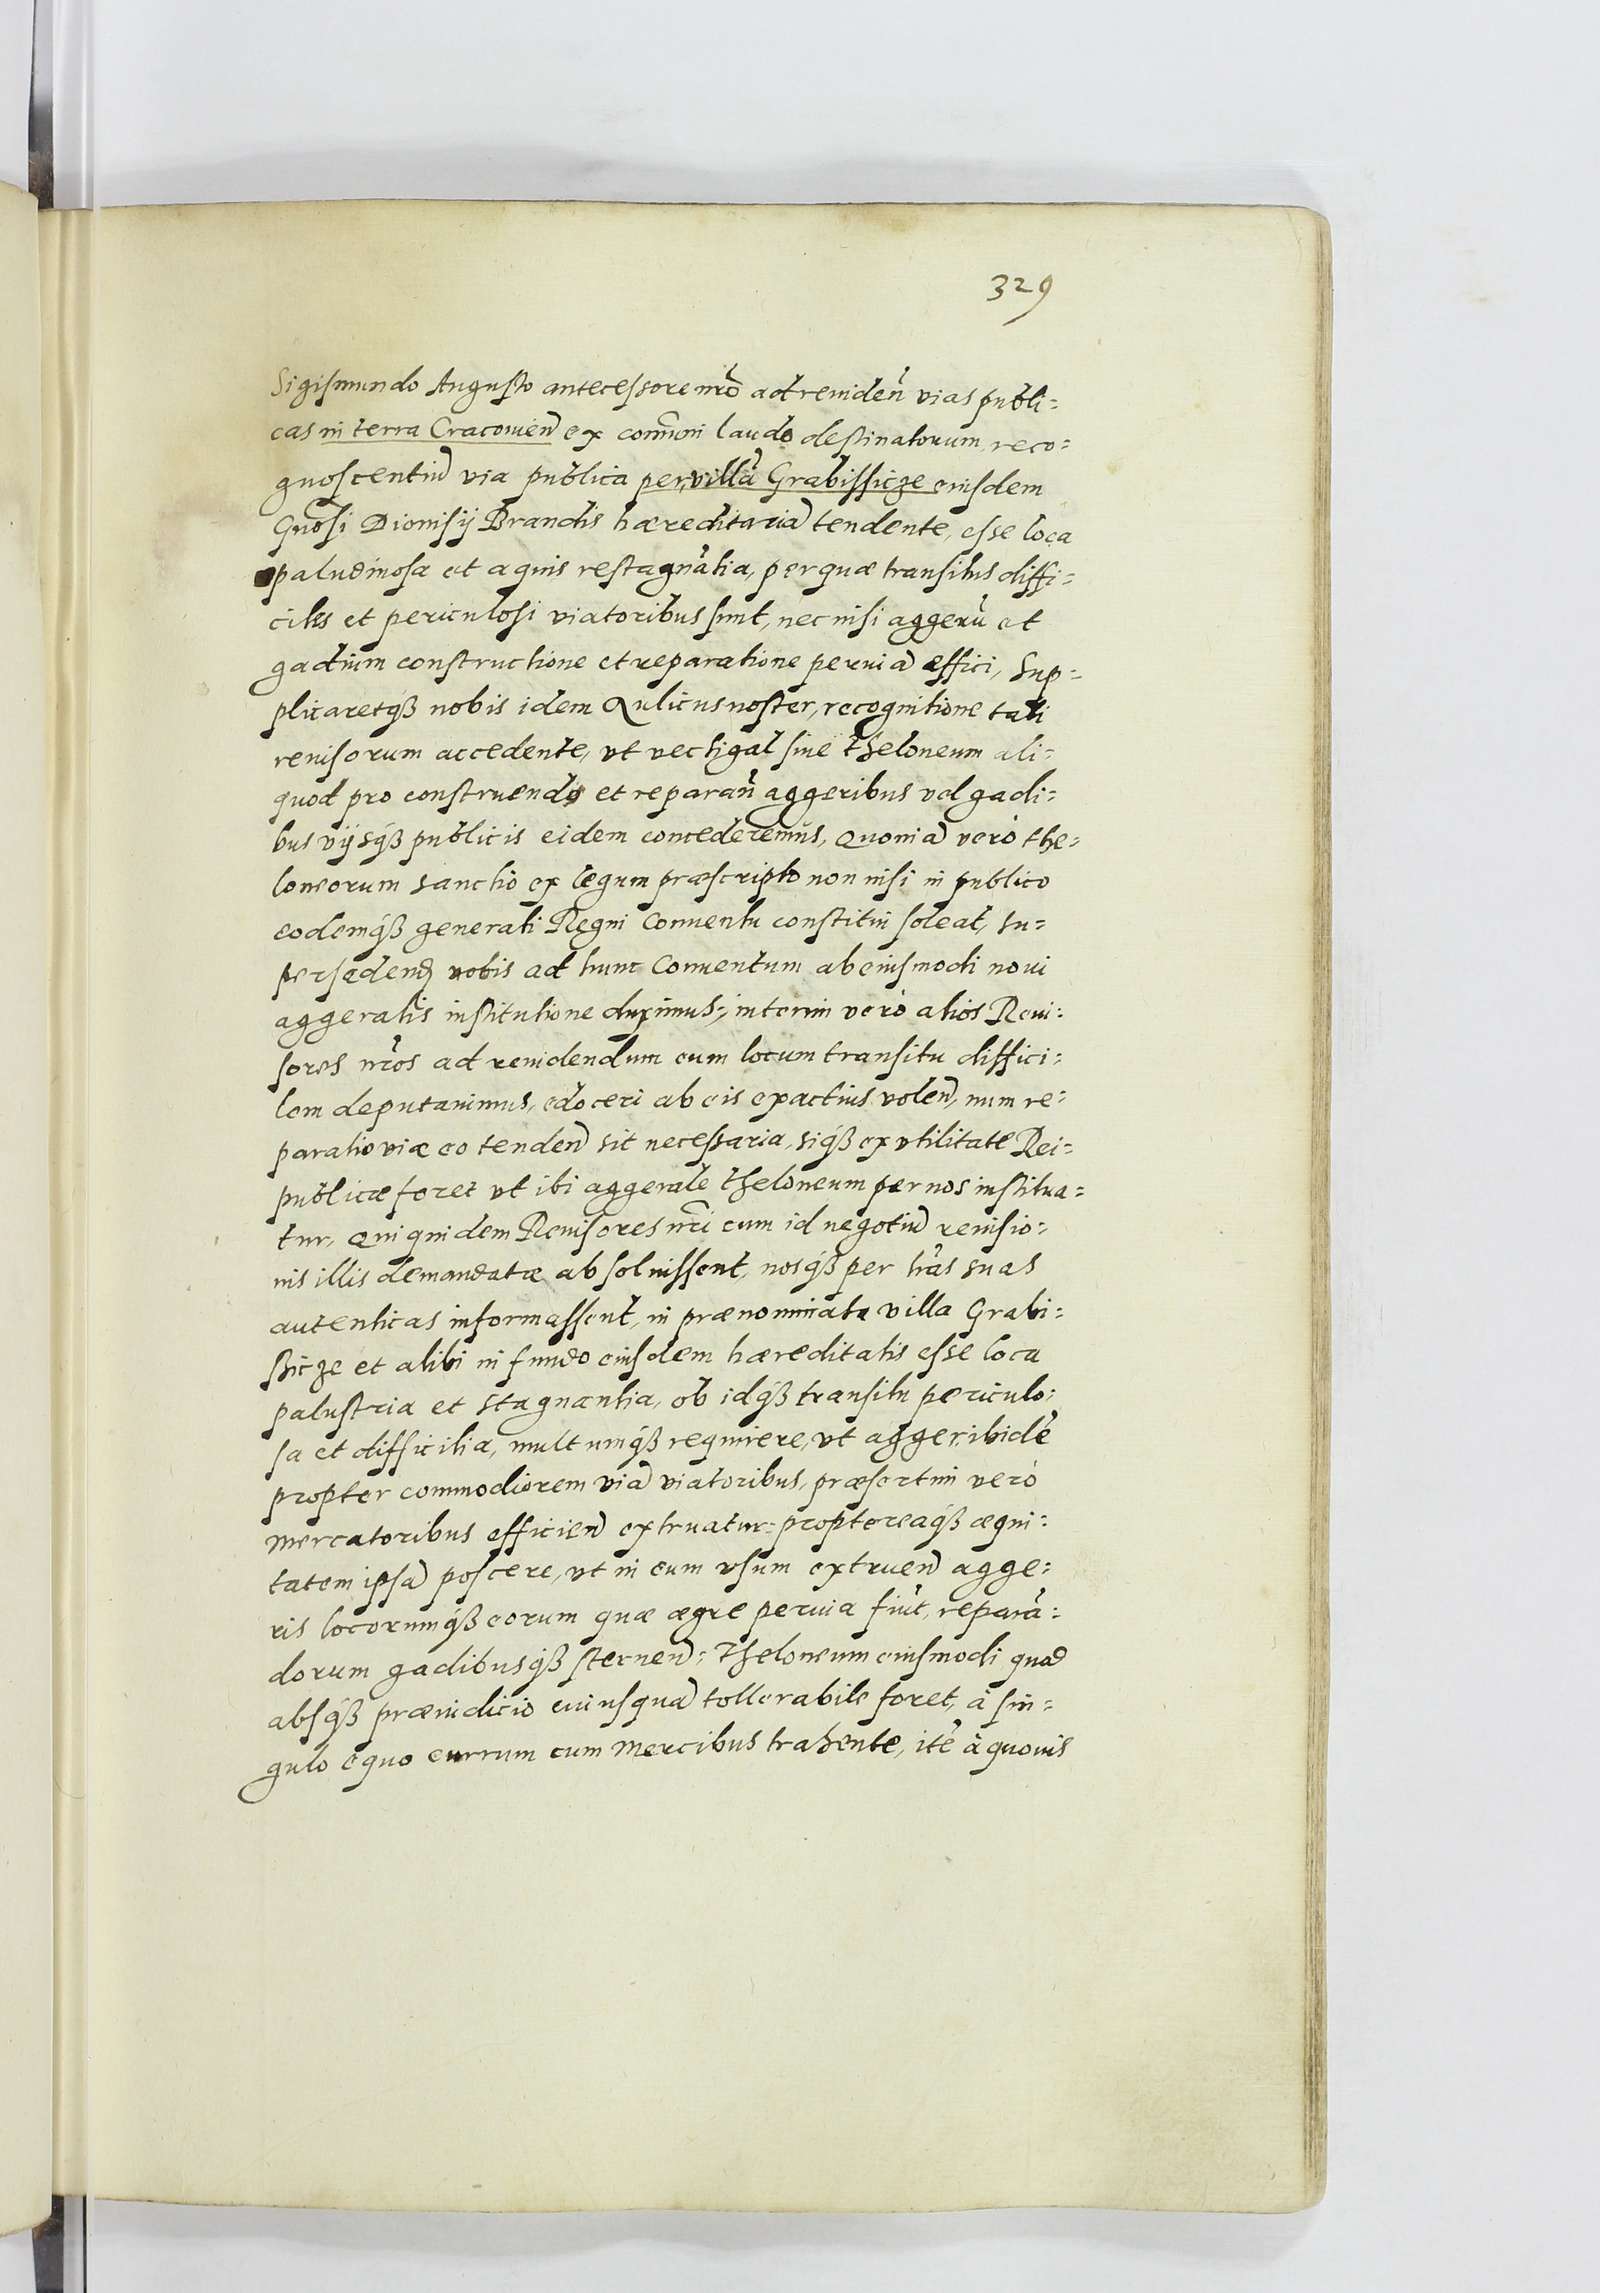 329
Sigismundo Augusto antecessore nr̃o ad reuideñ vias publi=
cas in terra Cracouieñ ex com̃uni laudo destinatorum, reco=
gnoscentiũ via publica per villã Grabissicze eiusdem
Gñosi Dionisij Brandis hæreditariã tendente, esse loca
paludinosa et aquis restagnãtia, per quæ transitus diffi=
ciles et periculosi viatoribus sunt, nec nisi aggerũ et
gadium constructione et reparatione peruia effici, Sup=
plicaretq́ß nobis idem Aulicus noster, recognitione tali
reuisorum accedente, vt vectigal siue theloneum ali=
quod pro construendis et reparañ aggeribus vel gadi=
bus vijsq́ß publicis eidem concederemus, Quoniã verò the=
loneorum sanctio ex legum præscripto non nisi in publico
eodemq́ß generali Regni Conuentu constitui soleat, su=
persedenđ nobis ad hunc Conuentum ab eiusmodi noui
aggeralis institutione duximus; interim verò alios Reui=
sores nr̃os ad reuidendum eum locum transitu diffici=
lem deputauimus, edoceri ab eis exactius voleñ, num re=
paratio viæ eo tendeñ sit necessaria, siq́ß ex vtilitate Rei=
publicæ foret vt ibi aggerale theloneum per nos institua=
tur, Qui quidem Reuisores nr̃i cum id negotiũ reuisio=
nis illis demandatæ absoluissent, nosq́ß per lr̃as suas
autenticas informassent, in prænominata villa Grabi=
ssicze et alibi in fundo eiusdem hæreditatis esse loca
palustria et stagnantia, ob idq́ß transitu periculo=
sa et difficilia, multumq́ß requirere, vt agger ibidẽ
propter commodiorem viã viatoribus, præsertim verò
mercatoribus efficieñ extruatur: proptereaq́ß æqui=
tatem ipsã poscere, vt in eum vsum extrueñ agge=
ris locorumq́ß eorum quæ ægre peruia fiũt, reparã=
dorum gadibusq́ß sterneñ: theloneum eiusmodi quod
absq́ß præiudicio cuiusquã tollerabile foret, à sin=
gulo equo currum cum mercibus trahente, itẽ à quouis